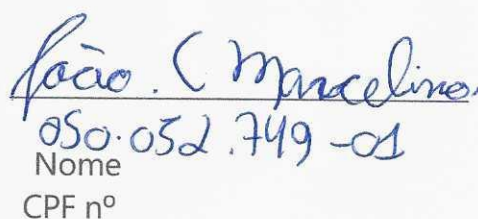 João. C Marcelino.
050.052.749-01
Nome
CPF nº